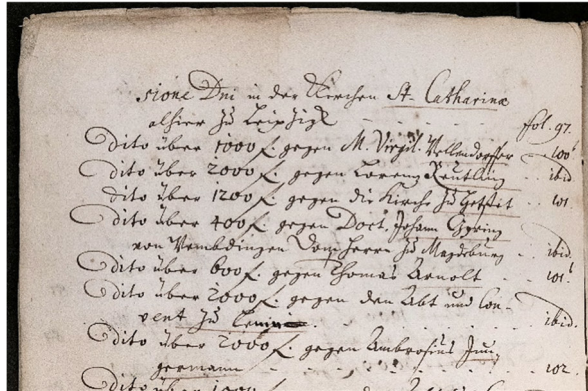 sione Dni in der Kirchen St. Catharinæ
alhier zu Leipzigk - - - fol. 97.
Dito über 1000 f. gegen M. Virgil. Wellendorffer 100
Dito über 2000 f. gegen Lorenz Reutling - ibid
Dito über 1200 f. gegen die Kirche zu - 101
Dito über 400 f. gegen Doct. Johann
von Wembdingen Domherrn zu Magdeburg - ibid.
Dito über 600 f. gegen Thomas Arnolt - 101.
Dito über 2000 f. gegen den Abt und Con-
vent zu - - - ibid
Dito über 2000 f. gegen Ambrosius Jun-
germann - - - 102
Dito über